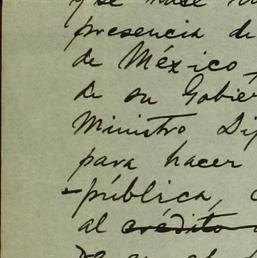 y se hace
presencia de
de México,
de su Gobier
Ministro Di
para hacer
-pública,
al crédito